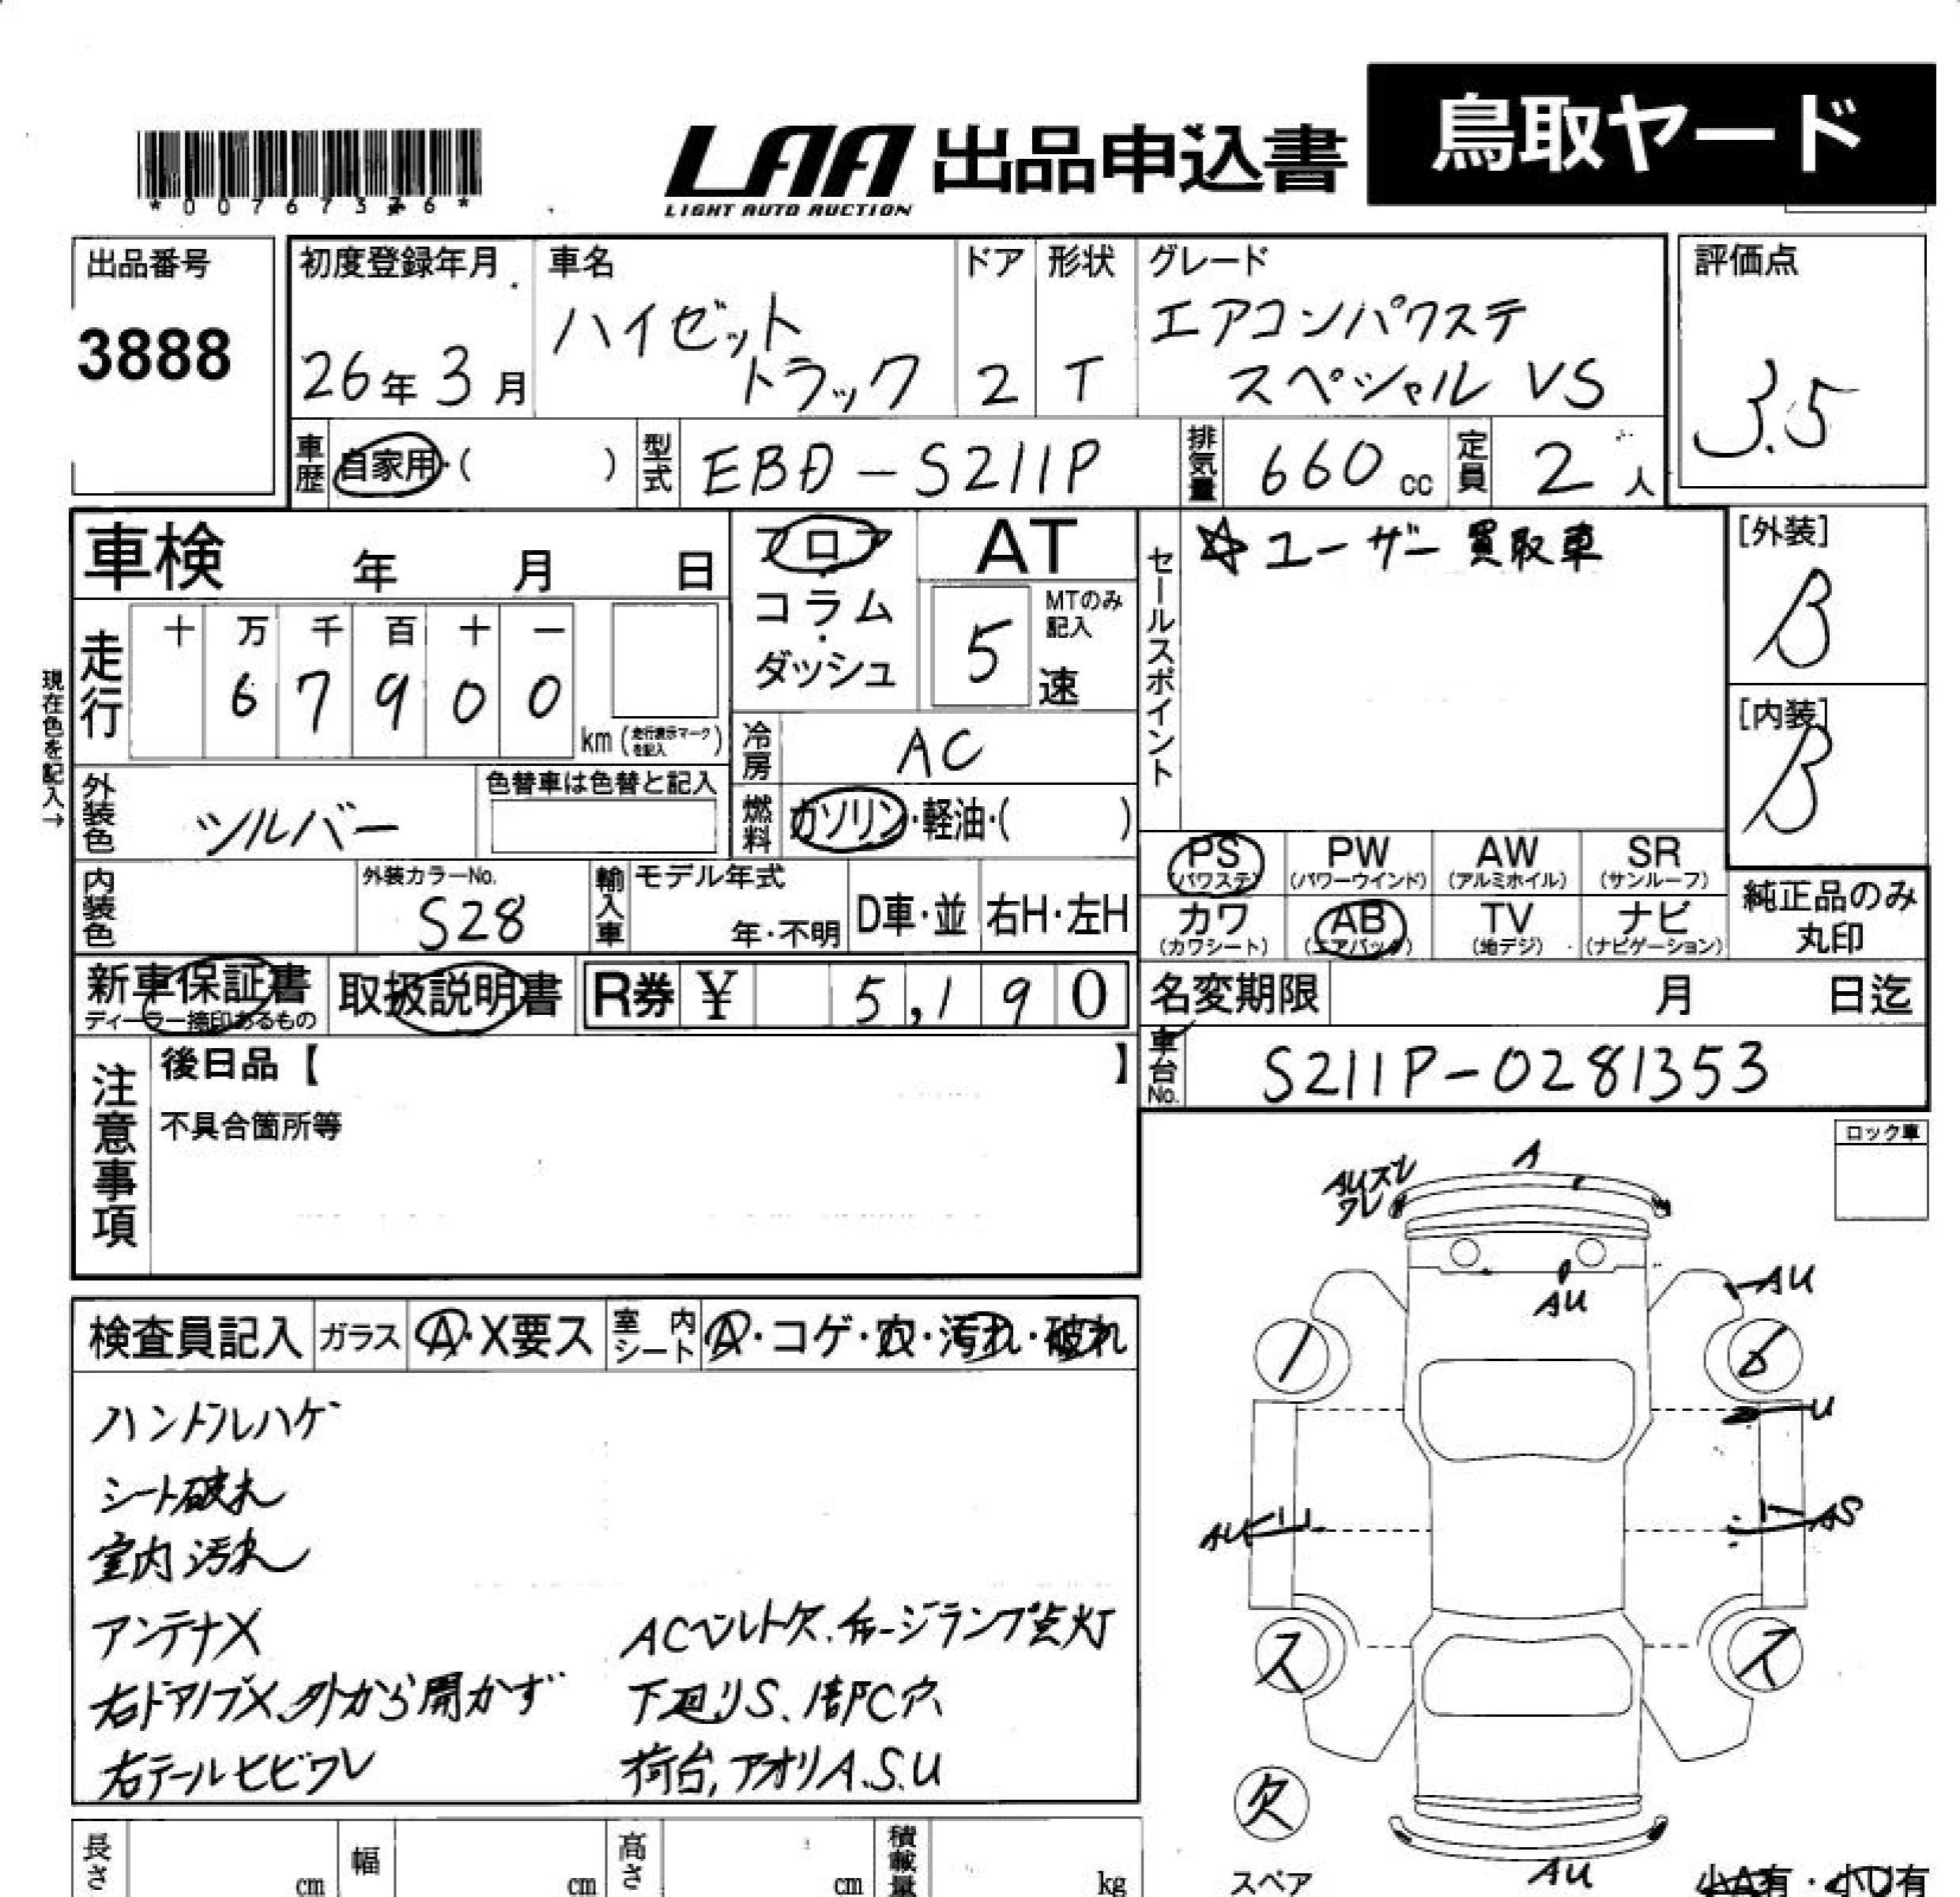 鳥取ヤード
LAA 出品申込書
LIGHT AUTO AUCTION
*0076736*
出品番号 初度登録年月 車名 ドア 形状 グレード 評価点
3888 26年3月 ハイゼット トラック 2 T エアコンパワステ スペシャル VS 3.5
車歴 自家用・( ) 型式 EBD-S211P 排気量 660 cc 定員 2 人
車検 年 月 日 フロア・コラム・ダッシュ AT
5 速 MTのみ記入
セールスポイント ☆ユーザー買取車
[外装] B
[内装] B
現在色を記入→
走行 十 万 千 百 十 一
6 7 9 0 0 km (走行表示マークを記入)
冷房 AC
外装色 シルバー 色替車は色替と記入
燃料 ガソリン・軽油・( )
PS (パワステ) PW (パワーウインド) AW (アルミホイル) SR (サンルーフ)
カワ (カワシート) AB (エアバッグ) TV (地デジ) ナビ (ナビゲーション)
純正品のみ丸印
内装色 外装カラーNo. S28 輸入車 モデル年式 年・不明 D車・並 右H・左H
新車保証書 ディーラー捺印あるもの 取扱説明書 R券 ¥ 5,190
名変期限 月 日迄
車台No. S211P-0281353
注意事項 後日品【 】
不具合箇所等
ロック車
A
AUズレ
ワレ
AU
AU
U
AU
AS
ス ス
欠
スペア
AU
小A有・小U有
検査員記入 ガラス A・X要ス 室内シート A・コゲ・穴・汚れ・破れ
ハンドルハゲ
シート破れ
室内汚れ
アンテナX
右ドアノブX、外から開かず
右テールヒビワレ
ACベルト欠、チャージランプ点灯
下廻りS、1部C穴
荷台,アオリA.S.U
長さ cm 幅 cm 高さ cm 積載量 kg